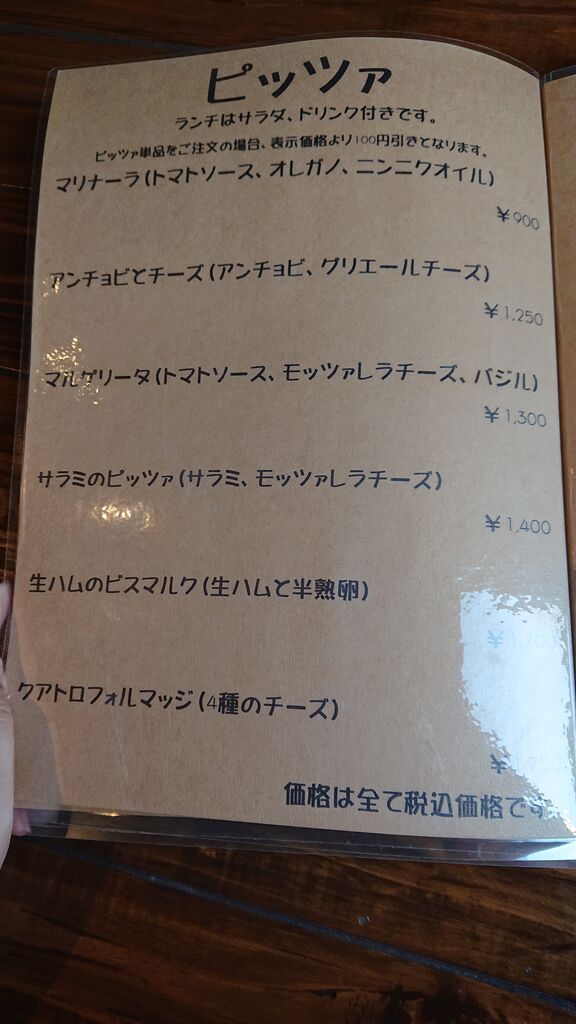 ピッツァ
ランチはサラダ、ドリンク付きです。
ピッツァ単品をご注文の場合、表示価格より100円引きとなります。
マリナーラ(トマトソース、オレガノ、ニンニクオイル)
￥900
アンチョビとチーズ(アンチョビ、グリエールチーズ)
￥1,250
マルゲリータ(トマトソース、モッツァレラチーズ、バジル)
￥1,300
サラミのピッツァ(サラミ、モッツァレラチーズ)
￥1,400
生ハムのビスマルク(生ハムと半熟卵)
￥1,700
クアトロフォルマッジ(4種のチーズ)
価格は全て税込価格です